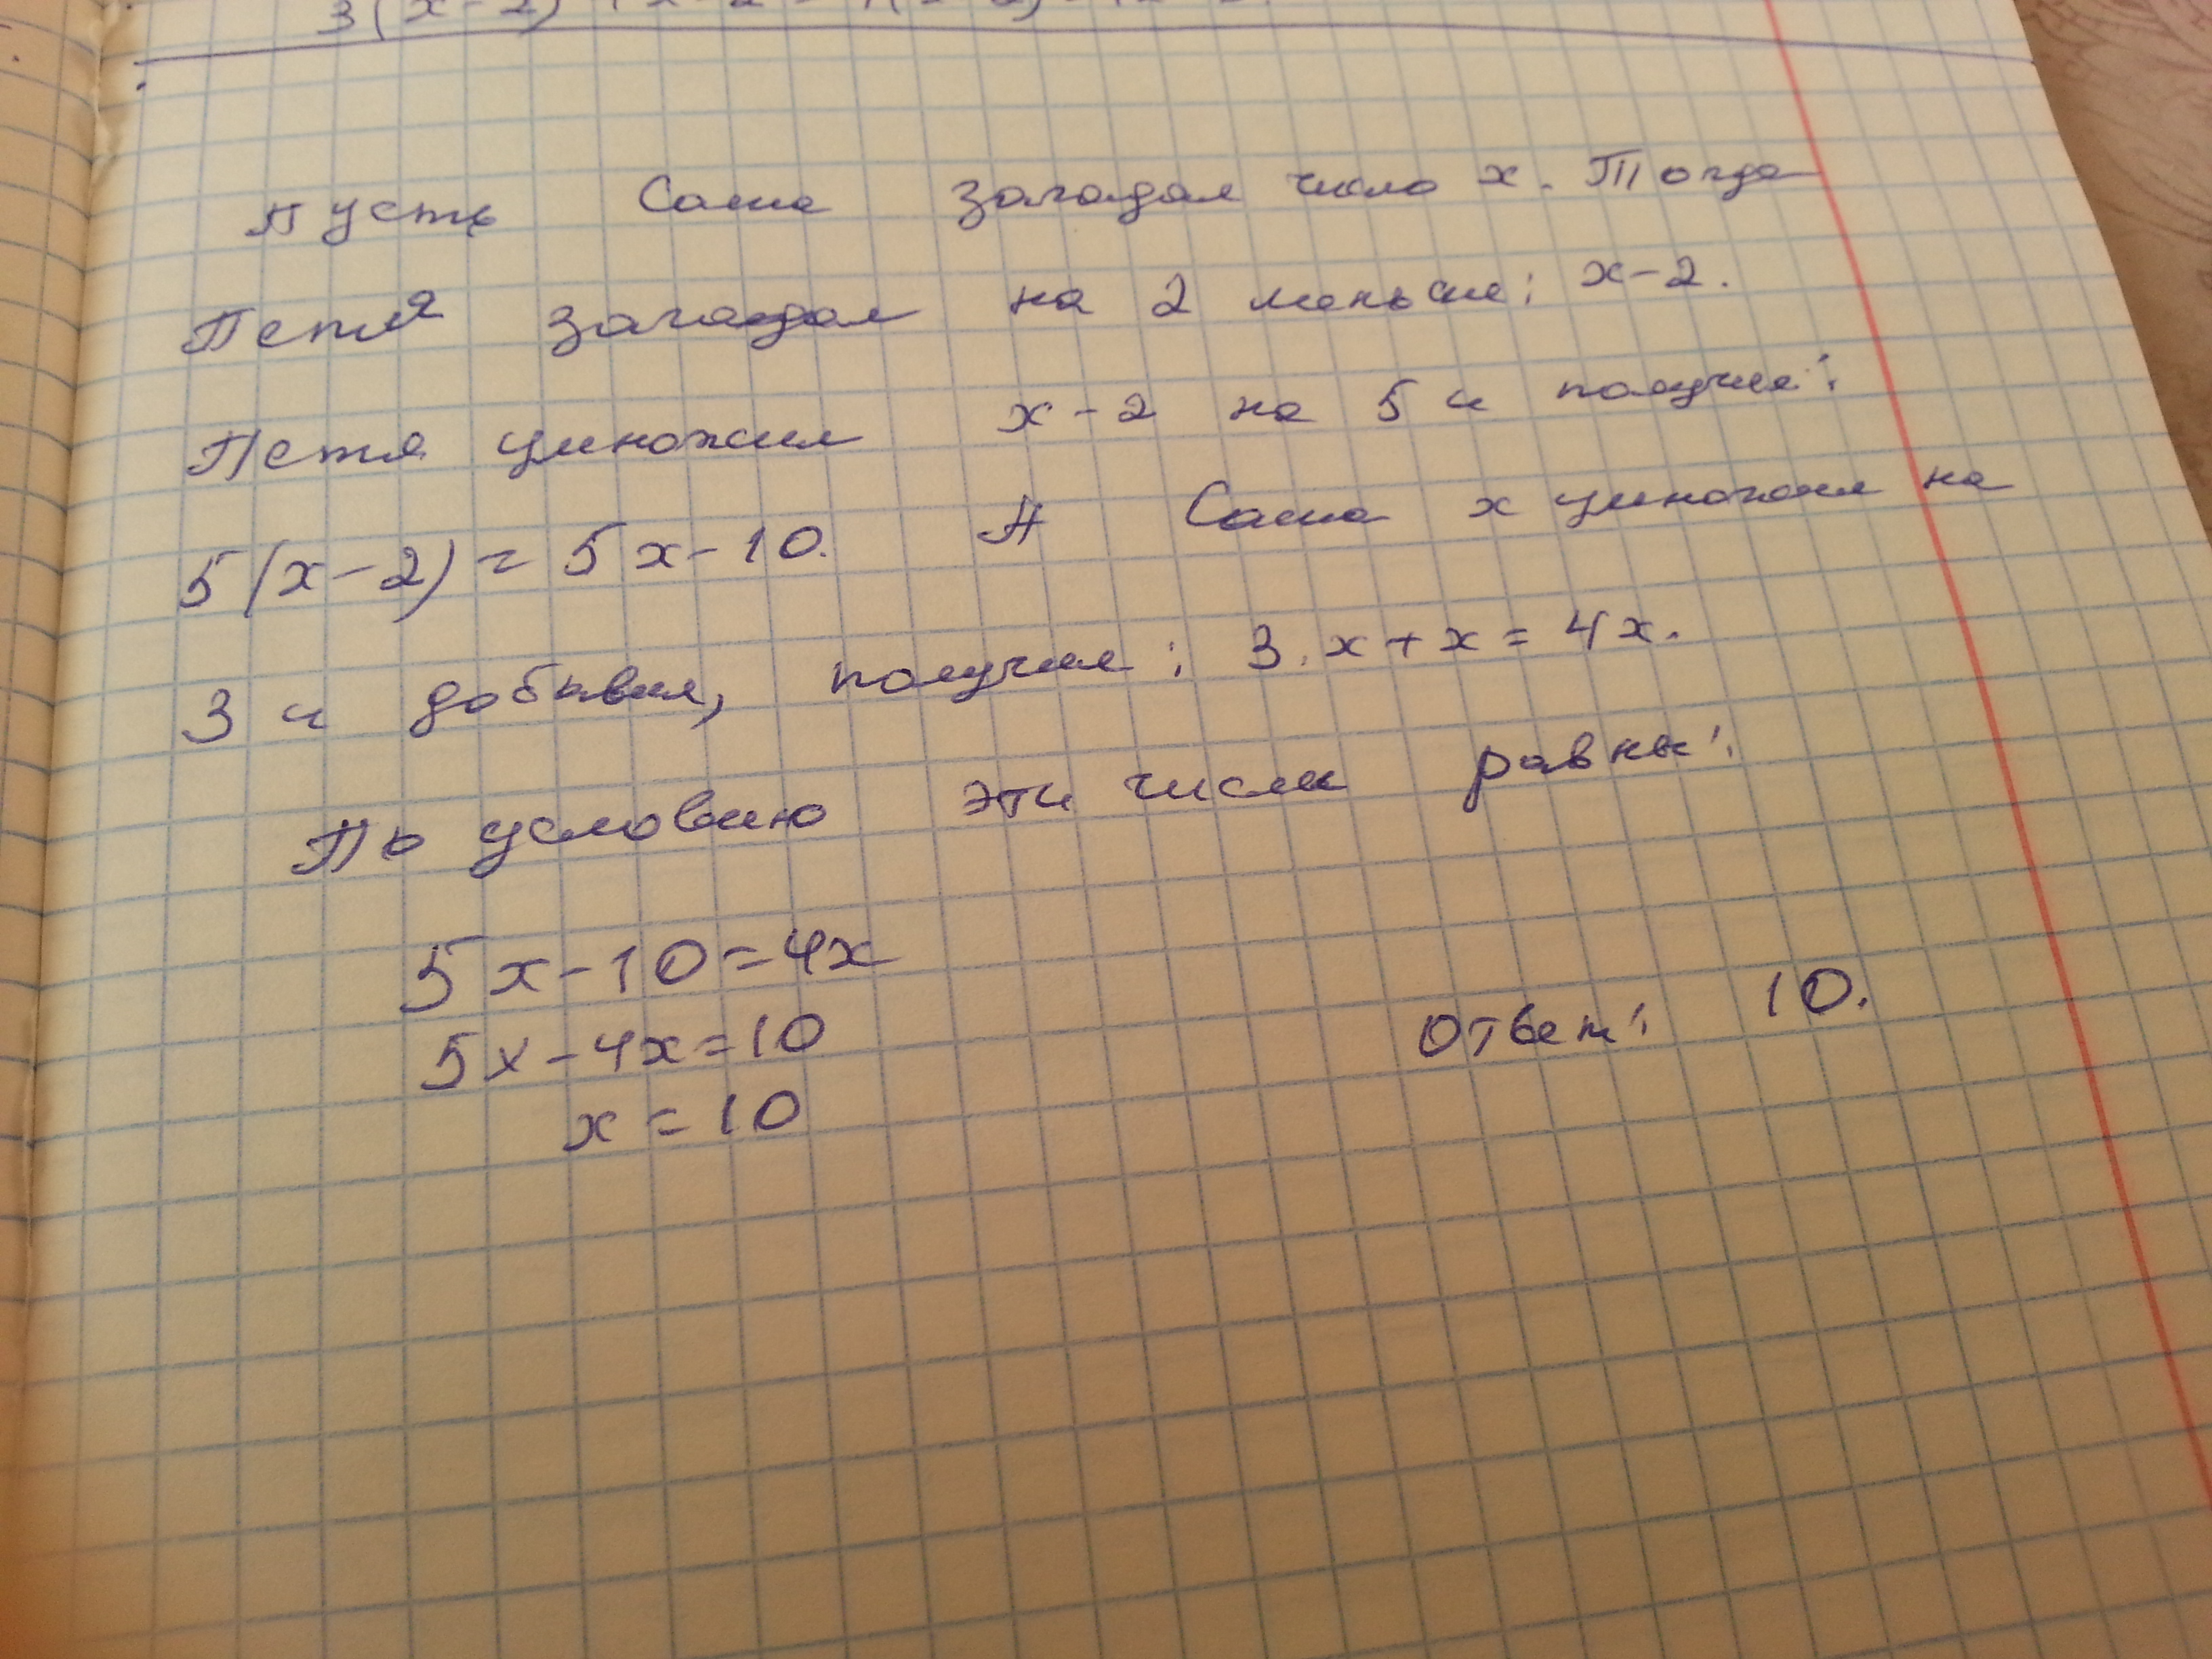 Пусть Саша загадал число x. Тогда
Петя загадал на 2 меньше: x-2.
Петя умножил x-2 на 5 и получил:
5(x-2) = 5x-10. А Саша x умножил на
3 и добавил, получил: 3·x+x = 4x.
По условию эти числа равны:
5x-10=4x
5x-4x=10
x=10
Ответ: 10.